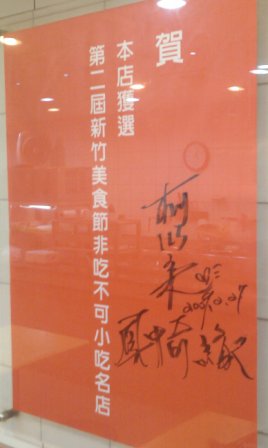 賀
本店獲選
第二屆新竹美食節非吃不可小吃名店